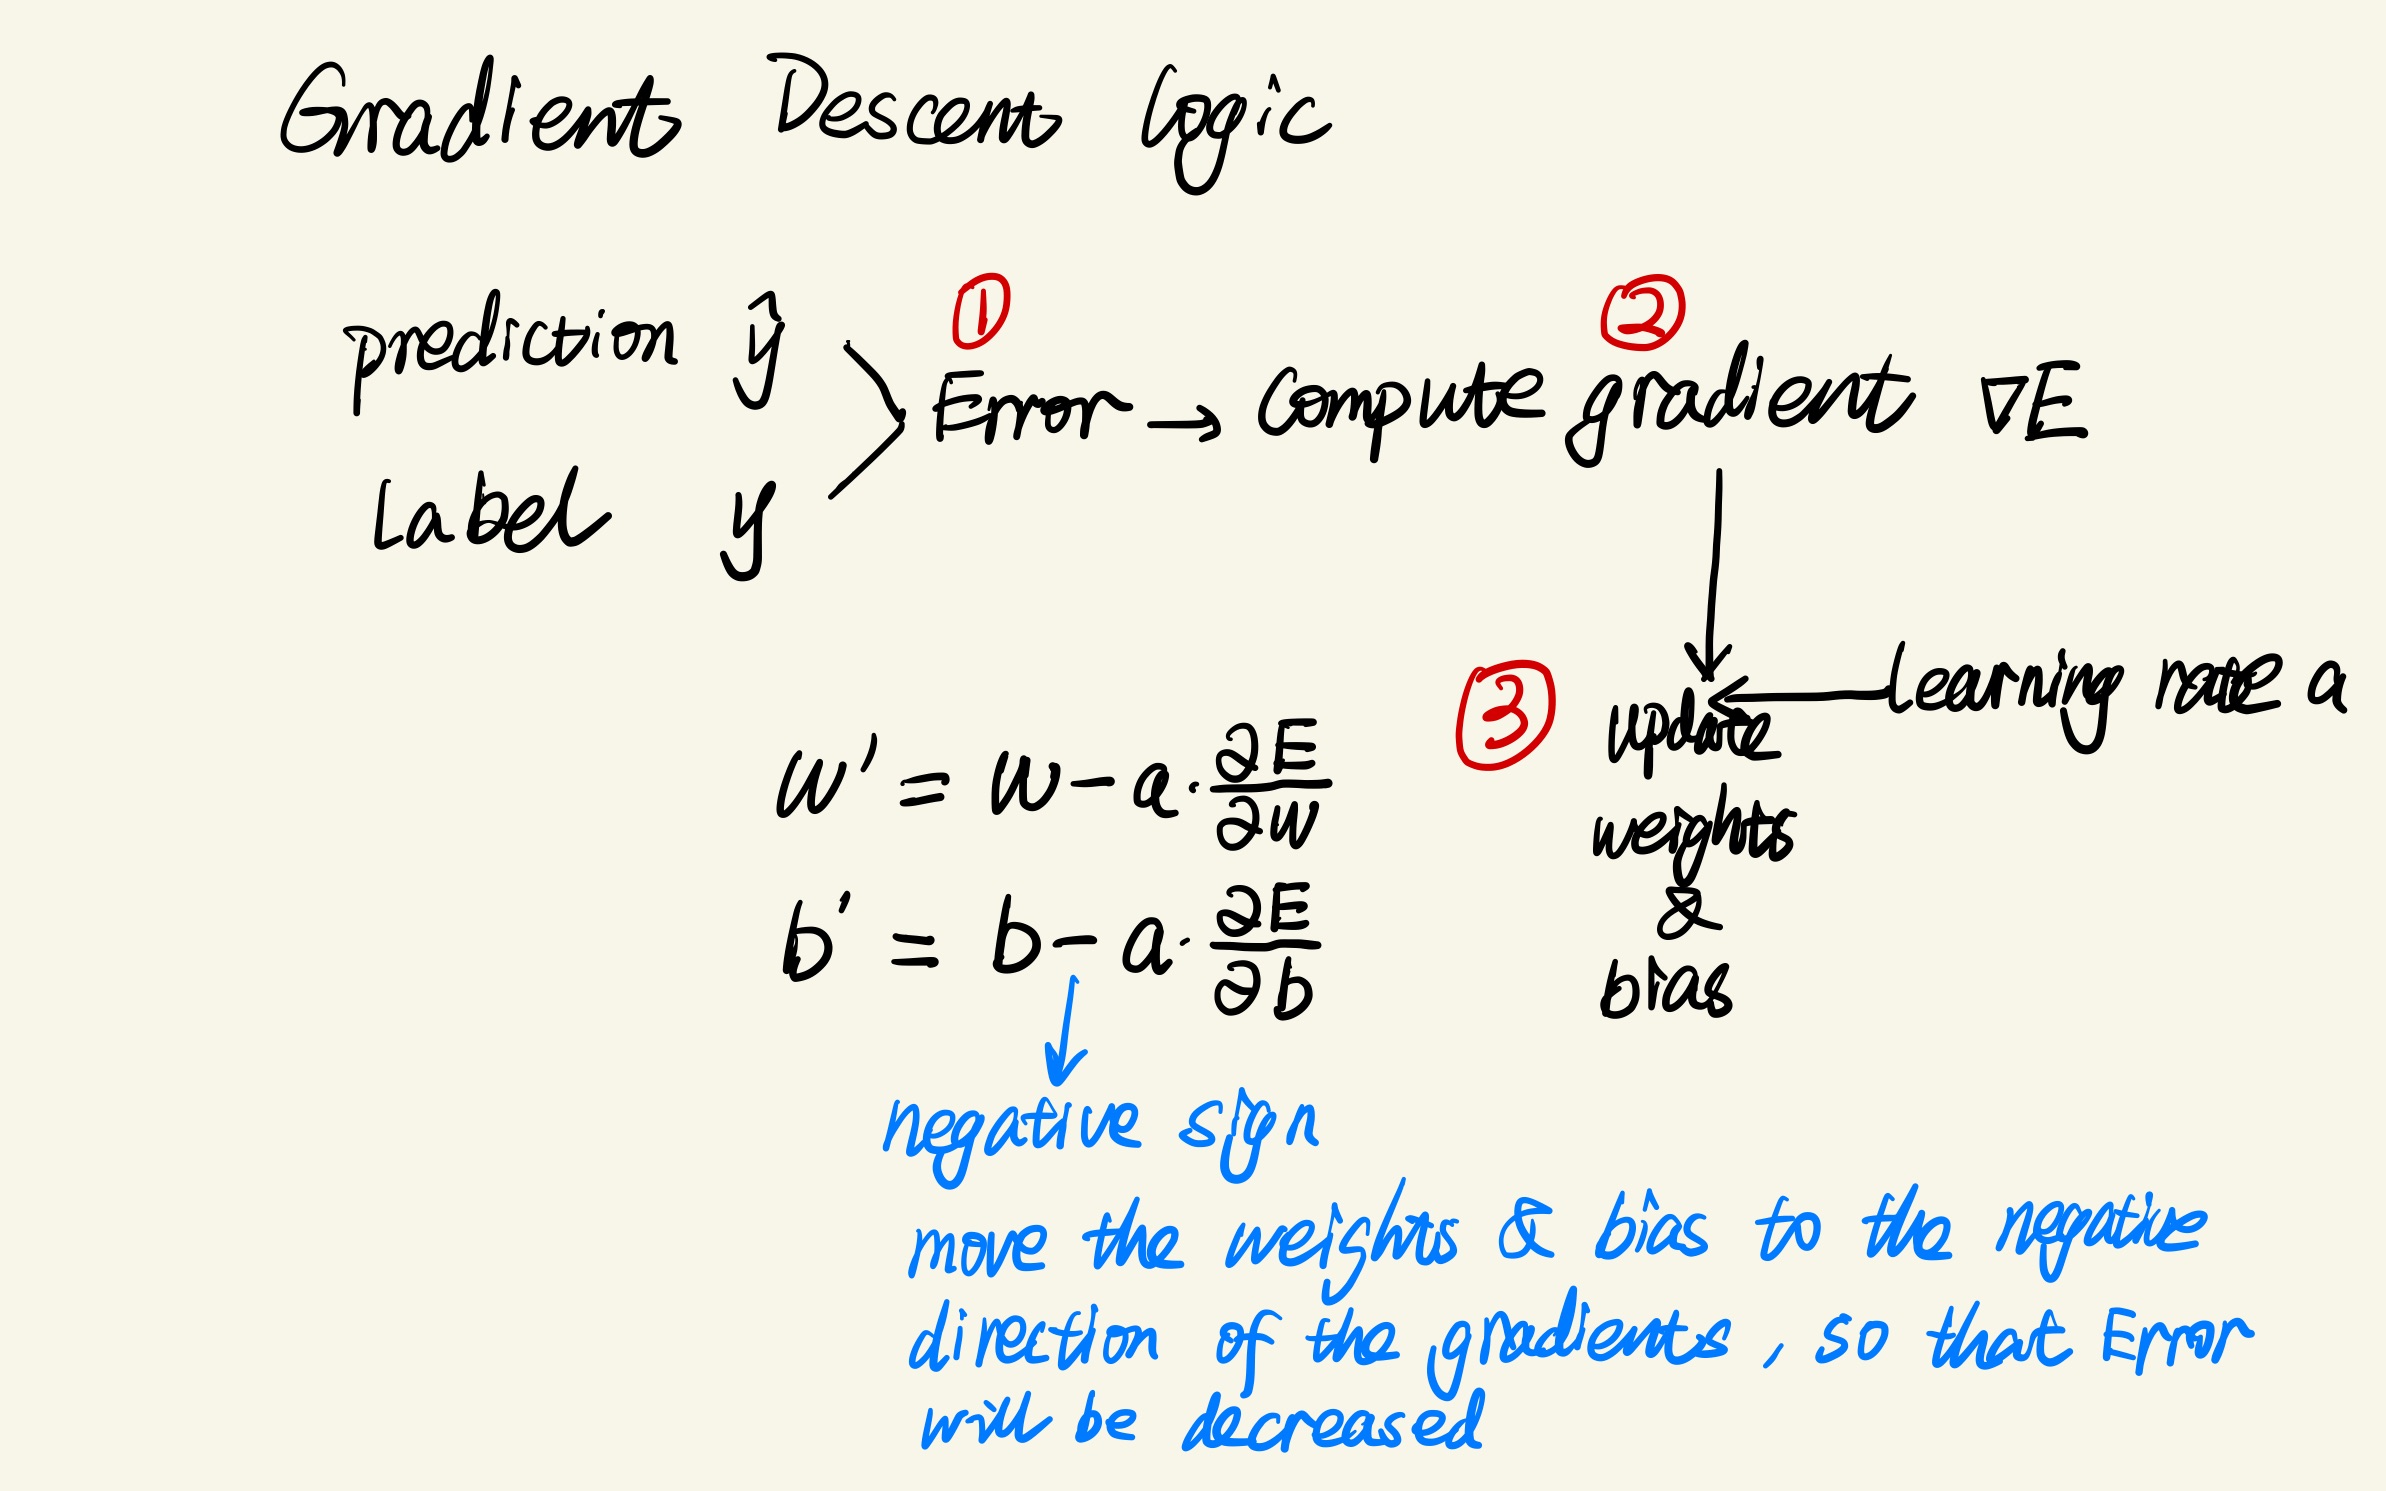 Gradient Descent Logic
prediction ŷ
Label y
① Error → Compute
② gradient ∇E
Learning rate a
③ update
weights
&
bias
w' = w - a · ∂E/∂w
b' = b - a · ∂E/∂b
negative sign
move the weights & bias to the negative
direction of the gradients, so that Error
will be decreased